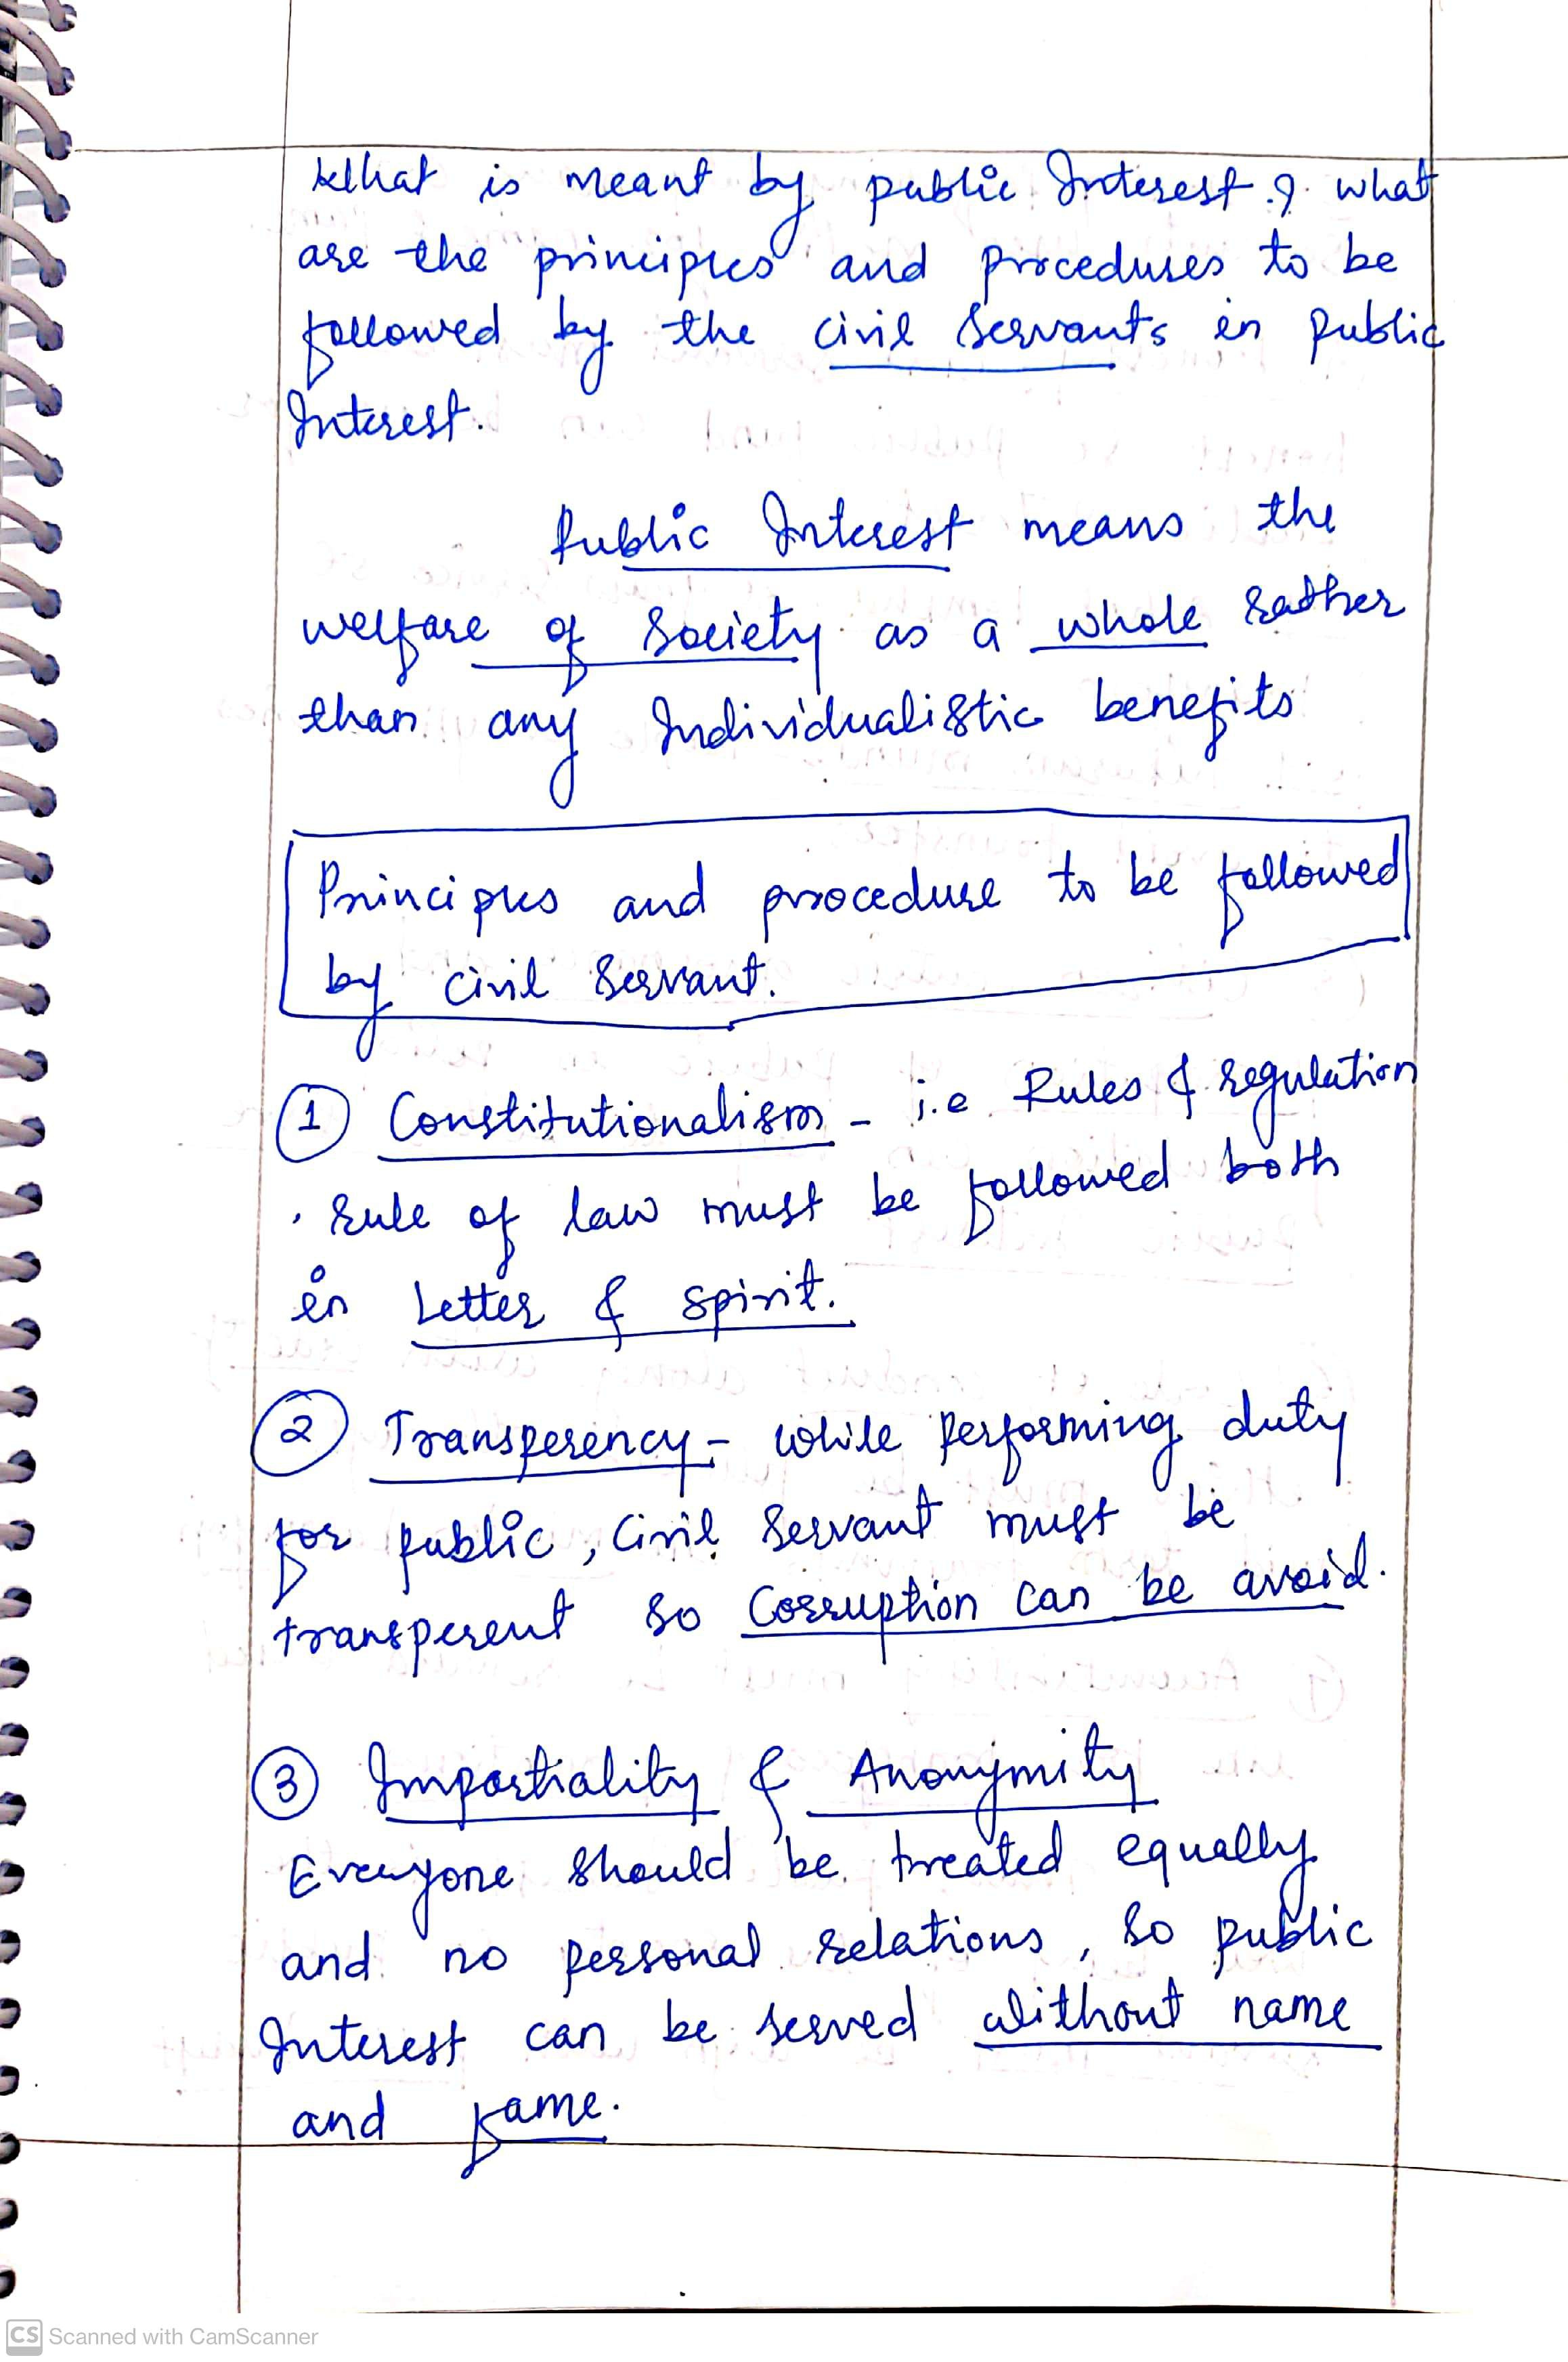 What is meant by public Interest ? what
are the principles and procedures to be
followed by the civil servants in public
Interest.
Public Interest means the
welfare of society as a whole rather
than any Individualistic benefits
Principles and procedure to be followed
by civil servant.
1 Constitutionalism - i.e Rules & regulation
, rule of law must be followed both
in letter & spirit.
2 Transperency - while performing duty
for public, Civil servant must be
transperent so Corruption can be avoid.
3 Impartiality & Anonymity
Everyone should be treated equally
and no personal relations, so public
Interest can be served without name
and fame.
CS Scanned with CamScanner